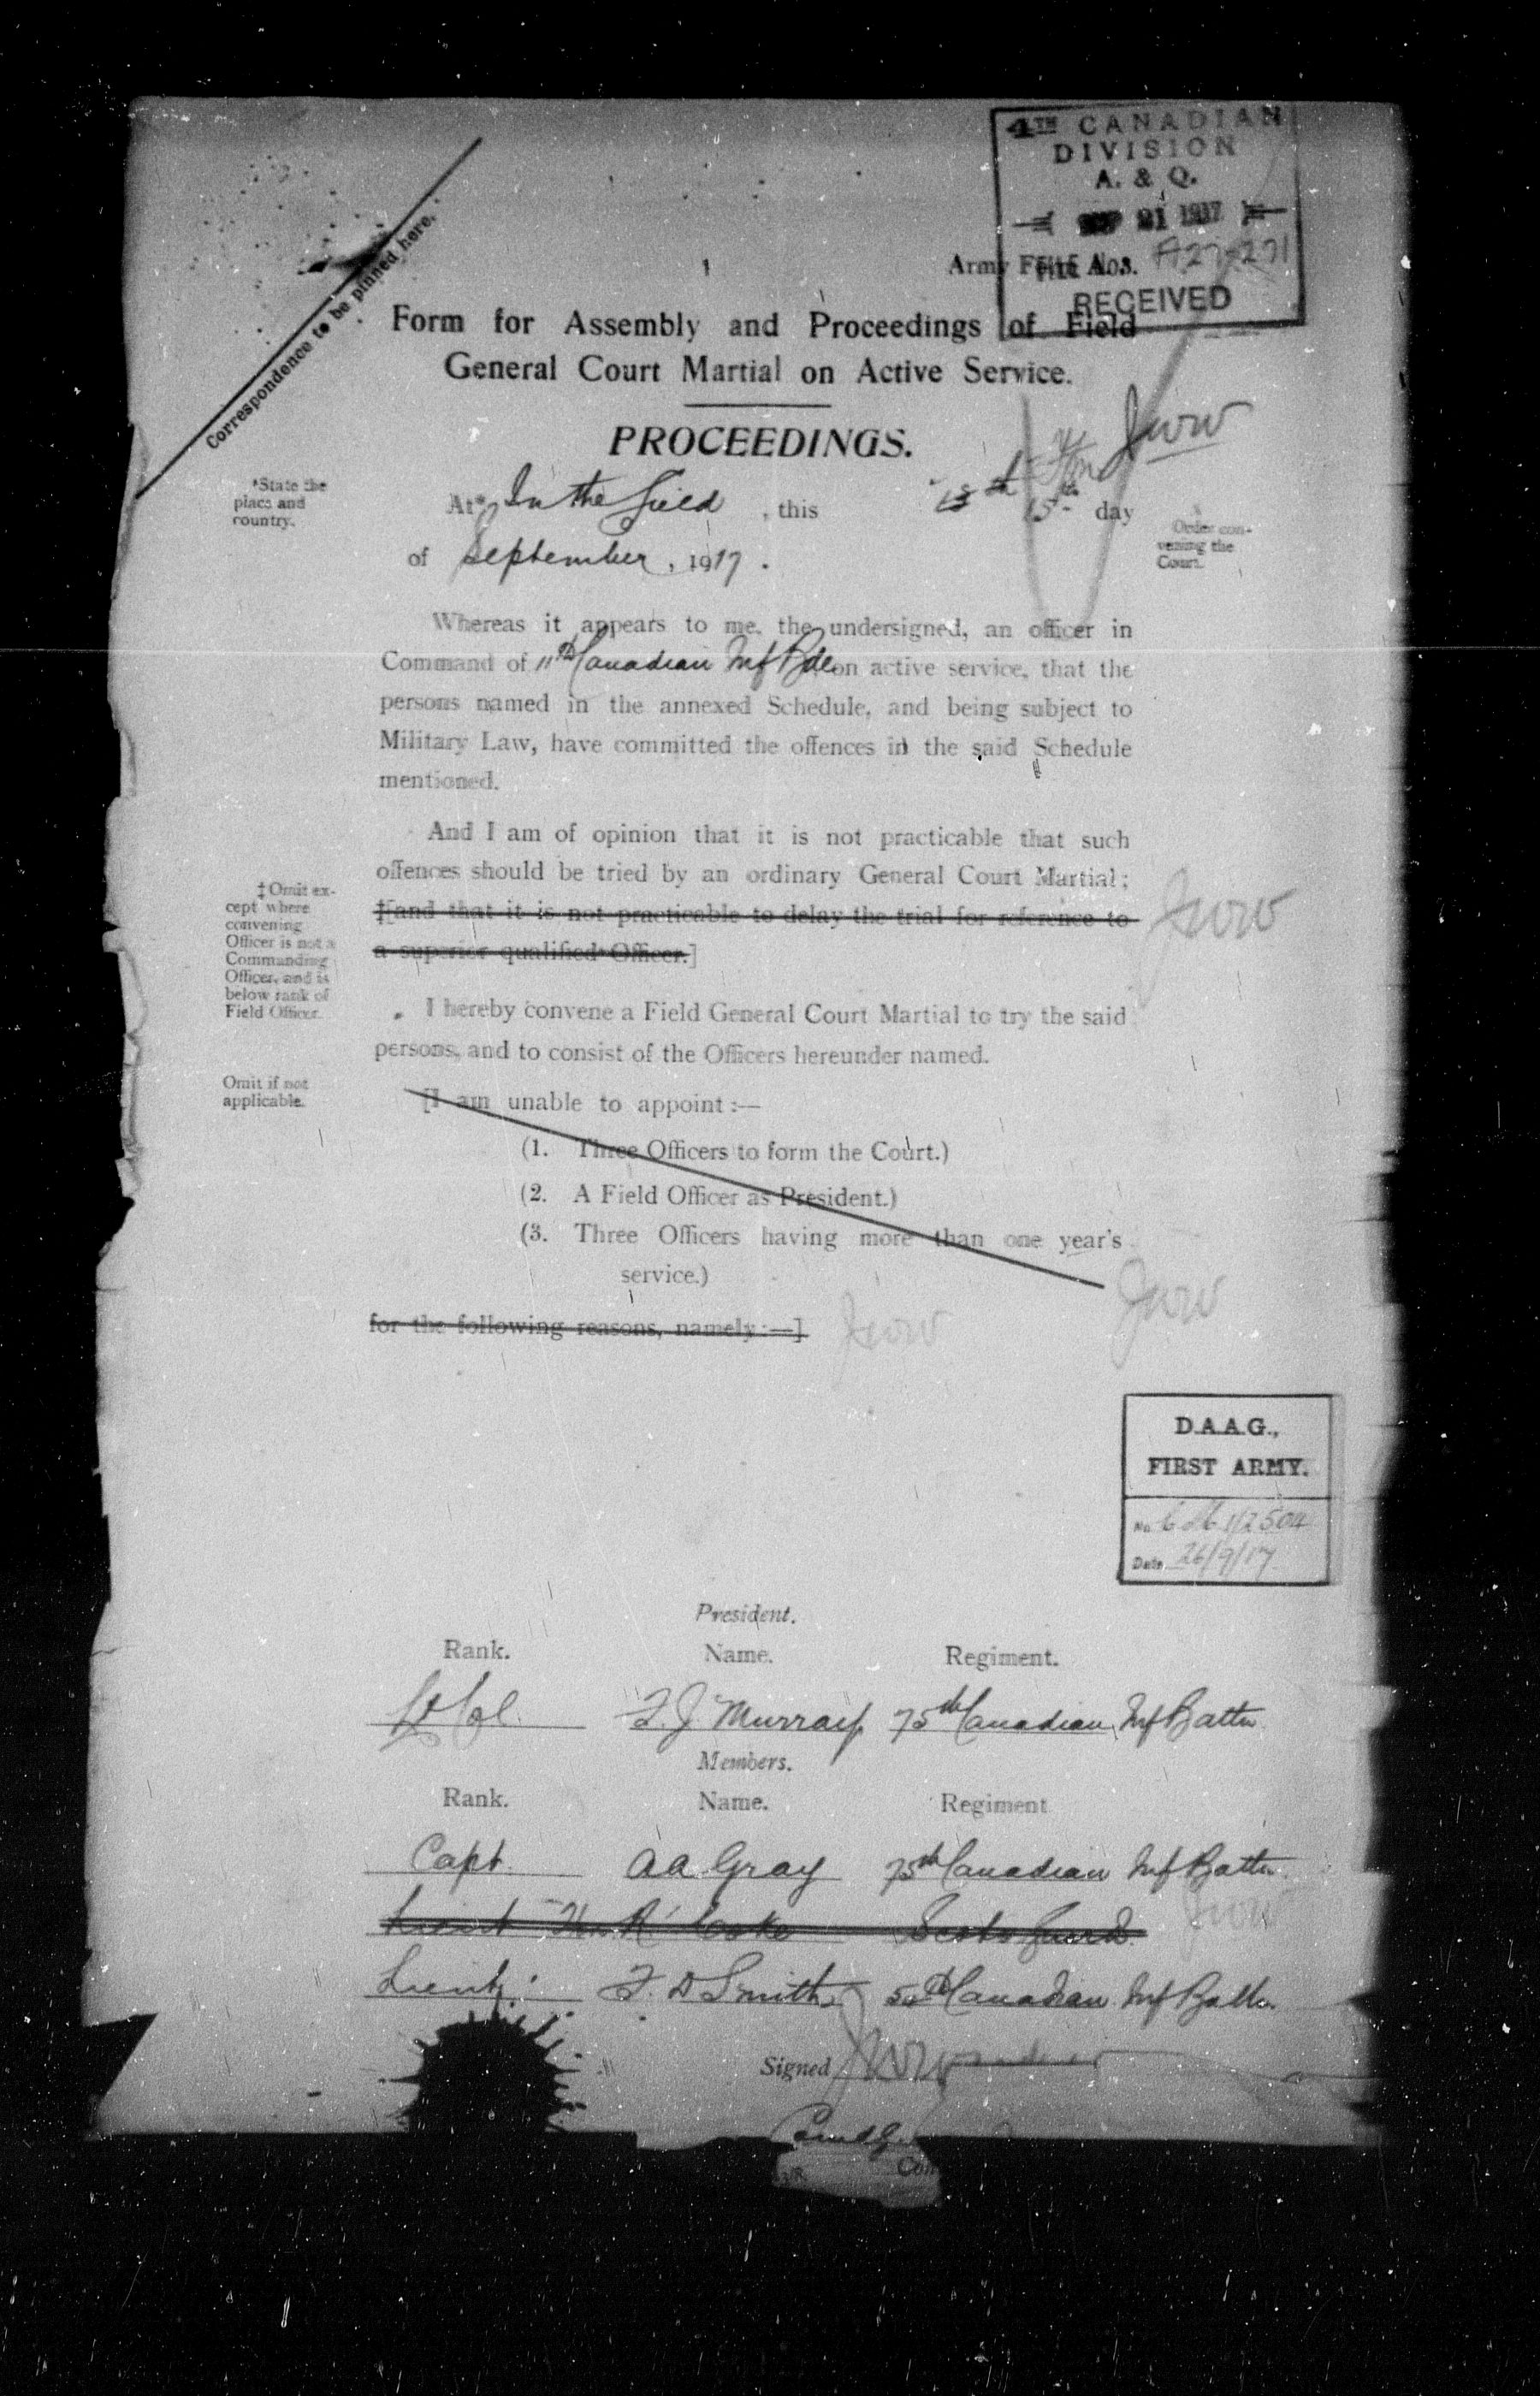 4TH CANADIAN
DIVISION
A. & Q.
SEP 21 1917
Army F
FILE No.
A27-271
RECEIVED
Correspondence to be pinned here.
Form for Assembly and Proceedings of Field
General Court Martial on Active Service.
PROCEEDINGS.
JWW
*State the
place and
country.
At* In the field, this 15th day
of September, 1917.
Order con-
vening the
Court.
Whereas it appears to me, the undersigned, an officer in
Command of 11th Canadian Inf Bde on active service, that the
persons named in the annexed Schedule, and being subject to
Military Law, have committed the offences in the said Schedule
mentioned.
And I am of opinion that it is not practicable that such
offences should be tried by an ordinary General Court Martial;
‡[and that it is not practicable to delay the trial for reference to
a superior qualified Officer.]
JWW
‡Omit ex-
cept where
convening
Officer is not a
Commanding
Officer, and is
below rank of
Field Officer.
I hereby convene a Field General Court Martial to try the said
persons, and to consist of the Officers hereunder named.
Omit if not
applicable.
[I am unable to appoint:—
(1. Three Officers to form the Court.)
(2. A Field Officer as President.)
(3. Three Officers having more than one year's
service.)
JWW
for the following reasons, namely:—]
JWW
D.A.A.G.,
FIRST ARMY.
No
Date 26/9/17
President.
Rank. Name. Regiment.
Lt Col. F.J. Murray 75th Canadian Inf Battn
Members.
Rank. Name. Regiment
Capt. A A Gray 75th Canadian Inf Battn.
Lieut Hon R Coke Scots Guards
JWW
Lieut. F. D Smith 54th Canadian Inf Battn
Signed